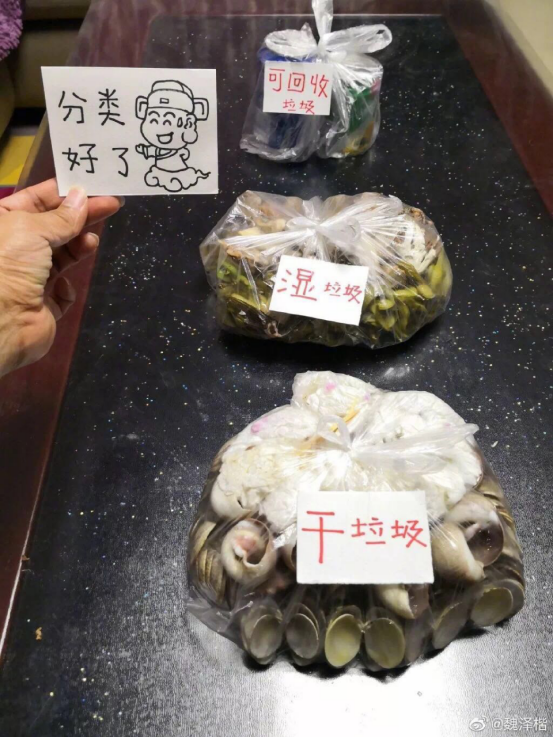 分类
好了
可回收
垃圾
湿垃圾
干垃圾
@魏泽楷